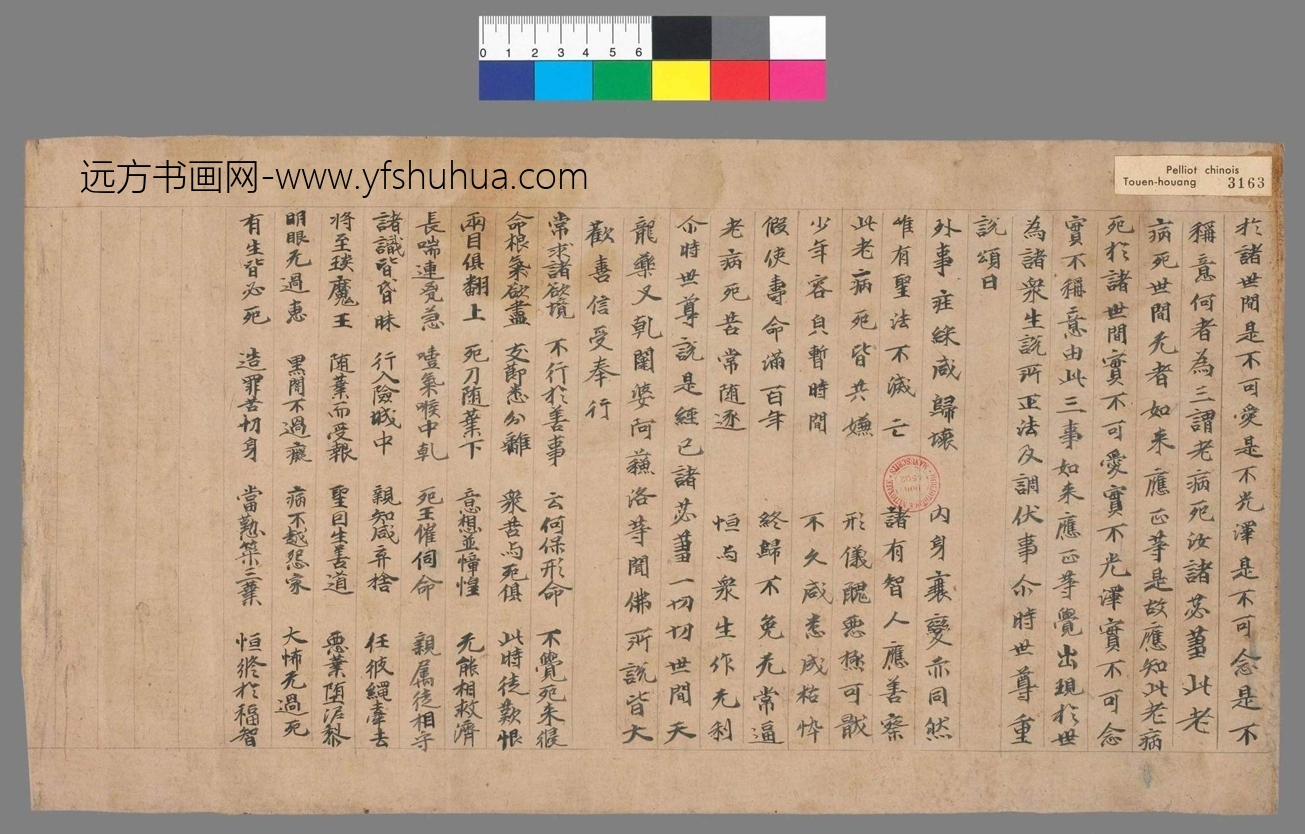 0 1 2 3 4 5 6
远方书画网-www.yfshuhua.com
Pelliot chinois
Touen-houang 3163
扵諸世間是不可愛是不光澤是不可念是不
稱意何者為三謂老病死汝諸苾蒭此老
病死世間无者如来應正等是故應知此老病
死扵諸世間實不可愛實不光澤實不可念
實不稱意由此三事如来應正等覺出現扵世
為諸衆生説所正法及調伏事尒時世尊重
説頌曰
外事莊綵咸歸壞 内身衰變亦同然
唯有聖法不滅亡 諸有智人應善察
此老病死皆共嫌 形儀醜悪極可猒
少年容皃暫時間 不久咸悉成枯悴
假使壽命滿百年 終歸不免无常逼
老病死苦常随逐 恒与衆生作无利
尒時世尊説是經已諸苾蒭一切切世間天
龍藥叉乹闥婆阿蘓洛等聞佛所説皆大
歡喜信受奉行
常求諸欲境 不行扵善事 云何保形命 不覺死来侵
命根氣欲盡 支節悉分離 衆苦与死俱 此時徒歎恨
兩目俱翻上 死刀随業下 意想並慞惶 无能相救濟
長喘連胷急 噎氣喉中乹 死王催伺命 親属徒相守
諸識皆昏昧 行入險城中 親知咸弃捨 任彼繩牽去
将至琰魔王 随業而受報 聖因生善道 悪業堕泥黎
明眼无過恵 黒闇不過癡 病不越怨家 大怖无過死
有生皆必死 造罪苦切身 當勤策三業 恒修扵福智